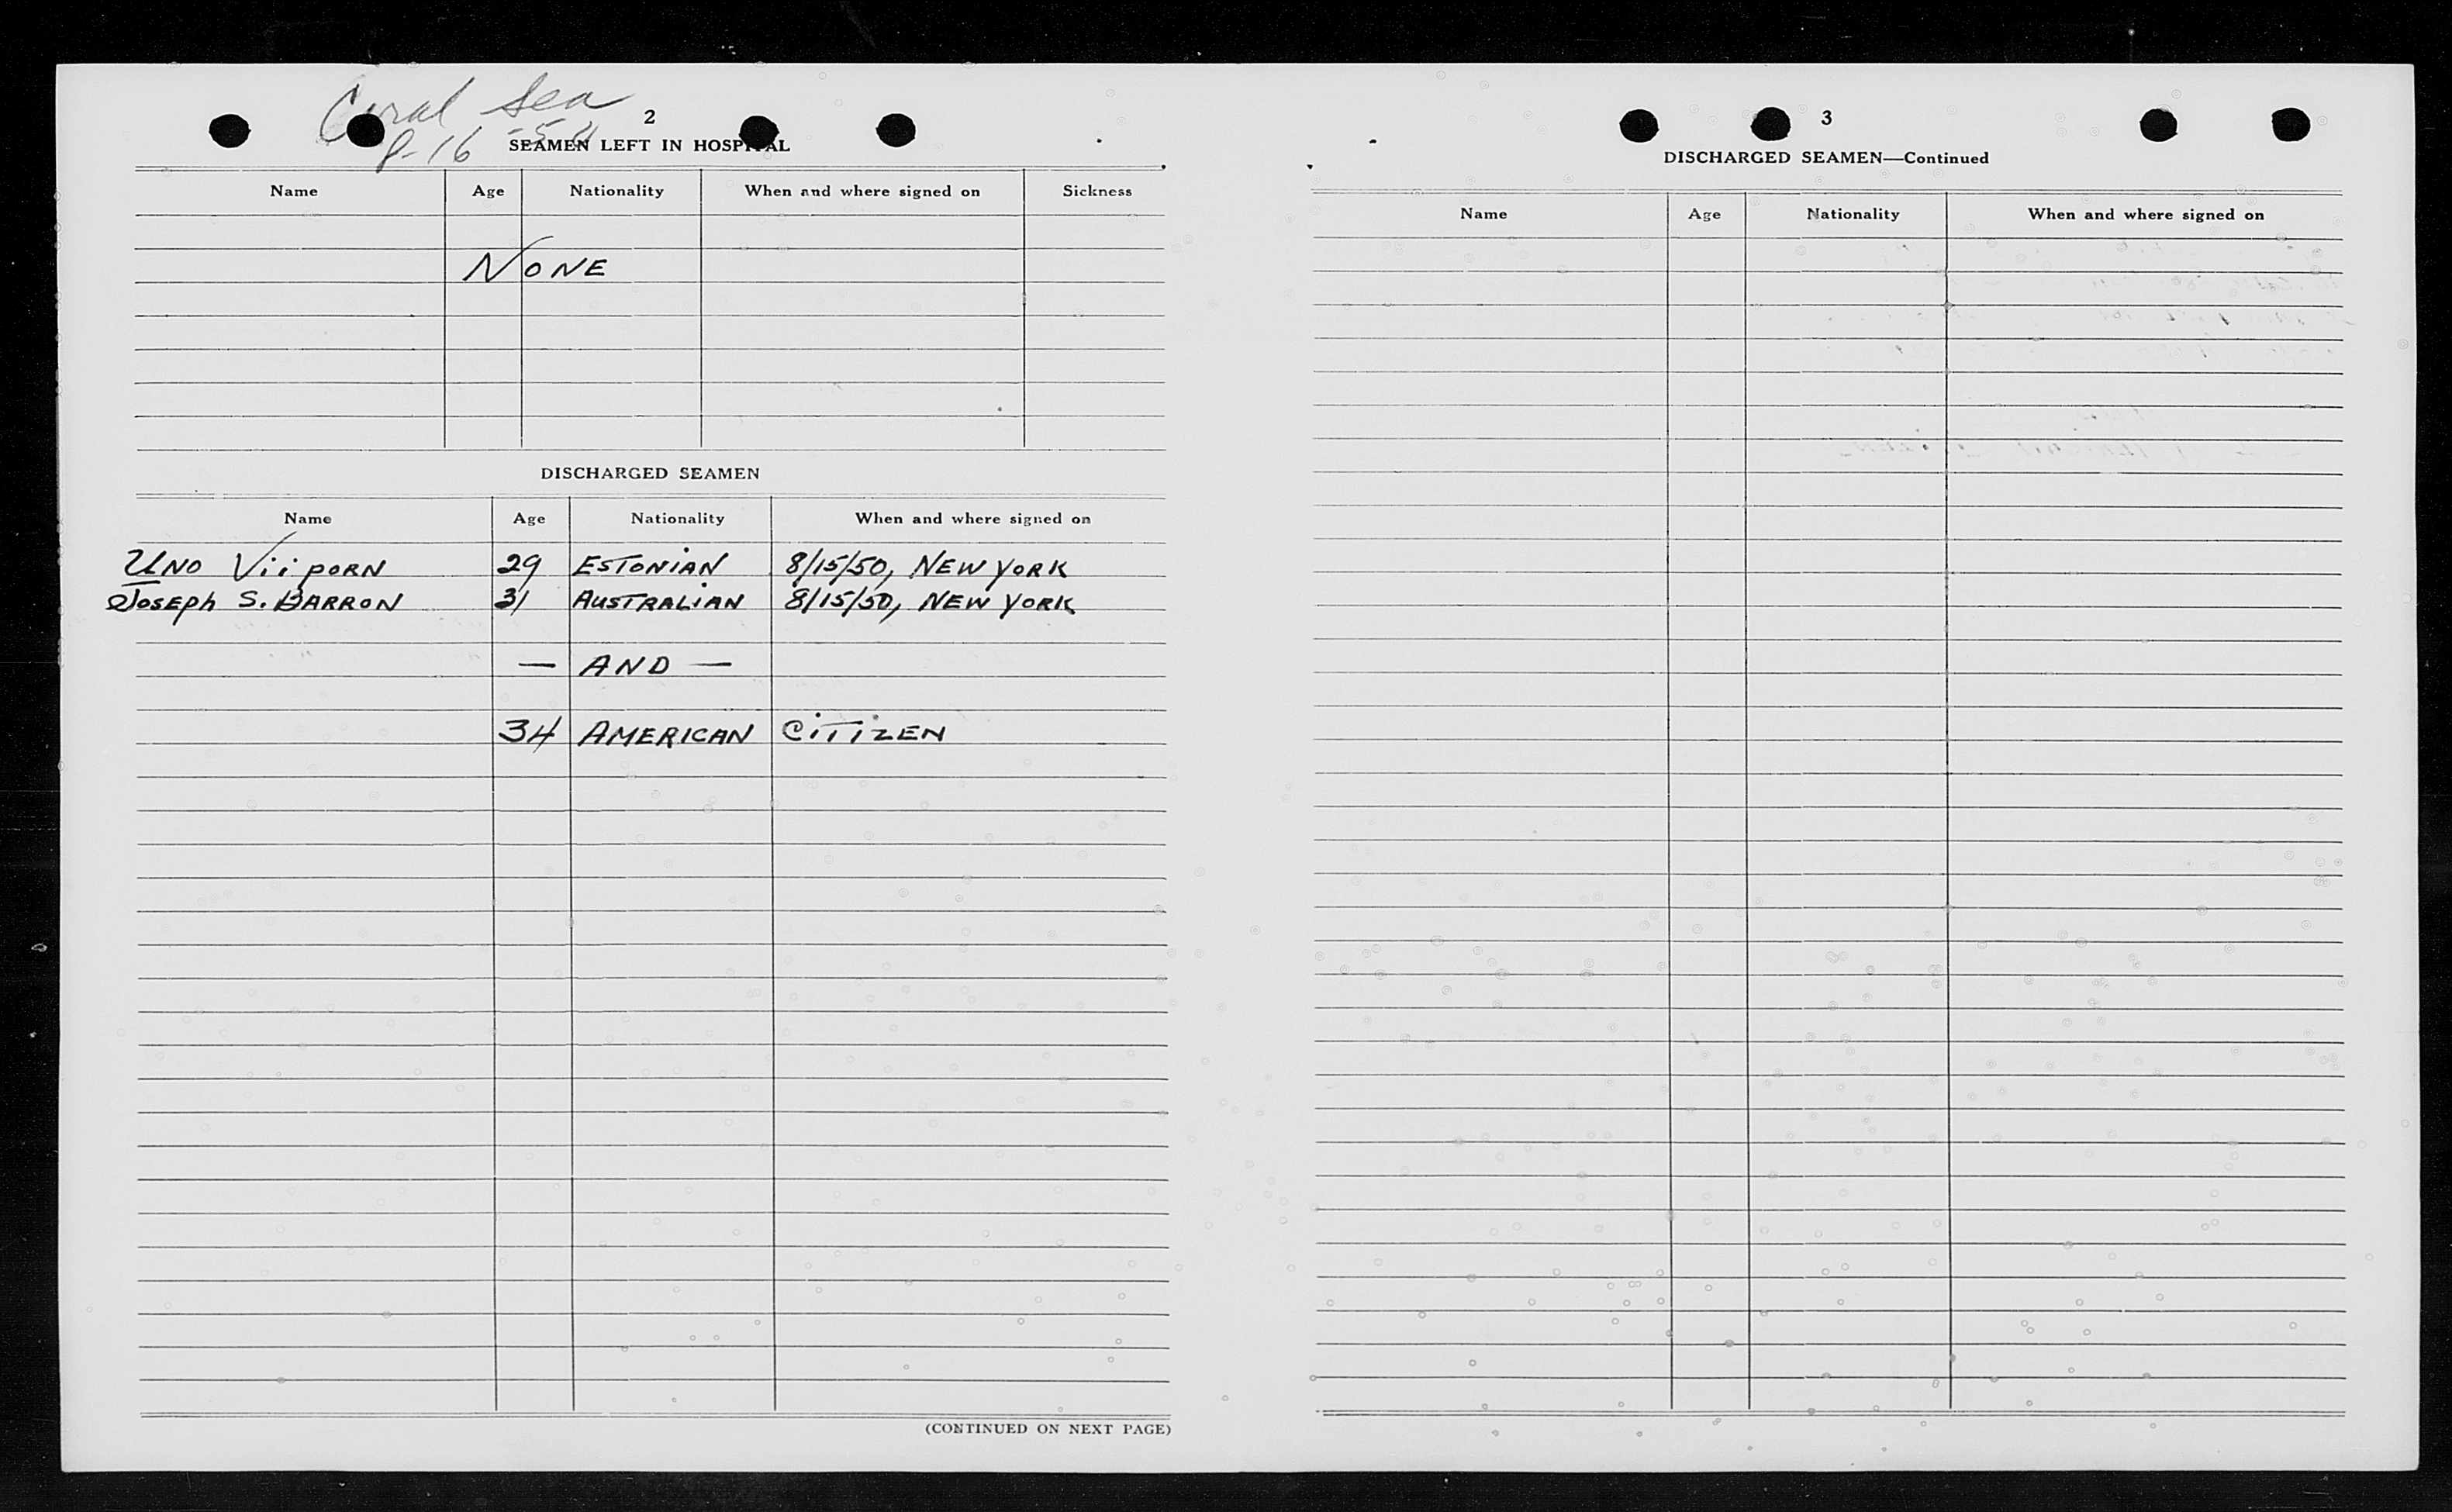 Coral Sea
2
8-16-50
SEAMEN LEFT IN HOSPITAL
Name Age Nationality When and where signed on Sickness
NONE
DISCHARGED SEAMEN
Name Age Nationality When and where signed on
UNO ViiPORN 29 ESTONIAN 8/15/50, NEW YORK
JOSEPH S. BARRON 31 AUSTRALIAN 8/15/50, NEW YORK
— AND —
34 AMERICAN CITIZEN
(CONTINUED ON NEXT PAGE)
3
DISCHARGED SEAMEN—Continued
Name Age Nationality When and where signed on